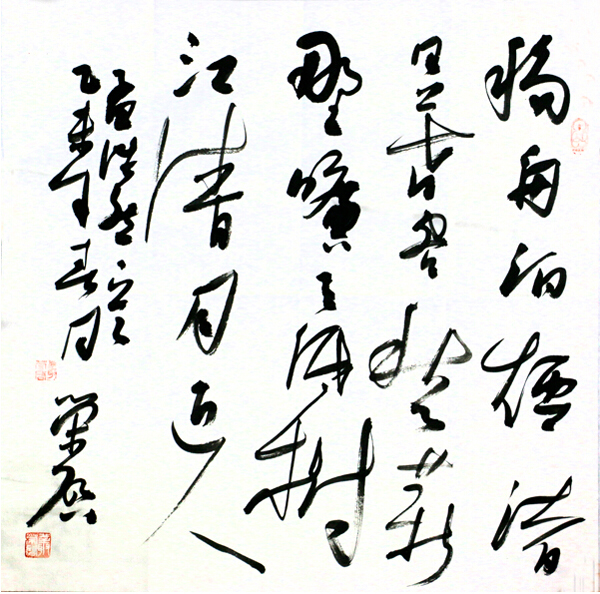 移舟泊煙渚
日暮客愁新
野曠天低樹
江清月近人
孟浩然
乙未年春月